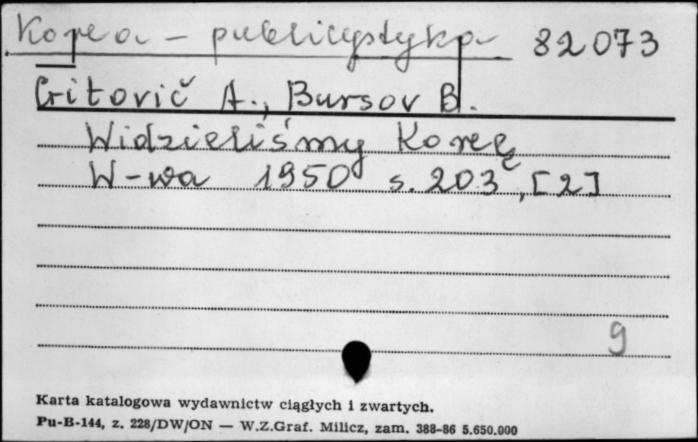 Korea - publicystyka 82073
Gitovič A., Bursov B.
Widzieliśmy Koreę
W-wa 1950 s. 203, [2]
9
Karta katalogowa wydawnictw ciągłych i zwartych.
Pu-B-144, z. 228/DW/ON — W.Z.Graf. Milicz, zam. 388-86 5.650.000